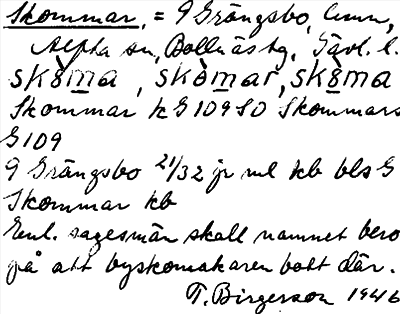 Skommar, = 9 Grängsbo, binn,
Alfta sn, Bollnäs tg, Gävl. l.
skòma, skòmar, skòma
Skommar k G 109 SO Skommars
G 109
9 Grängsbo 21/32 jr ml kb bls G
Skommar kb
Enl. sagesmän skall namnet bero
på att byskomakaren bott där.
T. Birgerson 1946